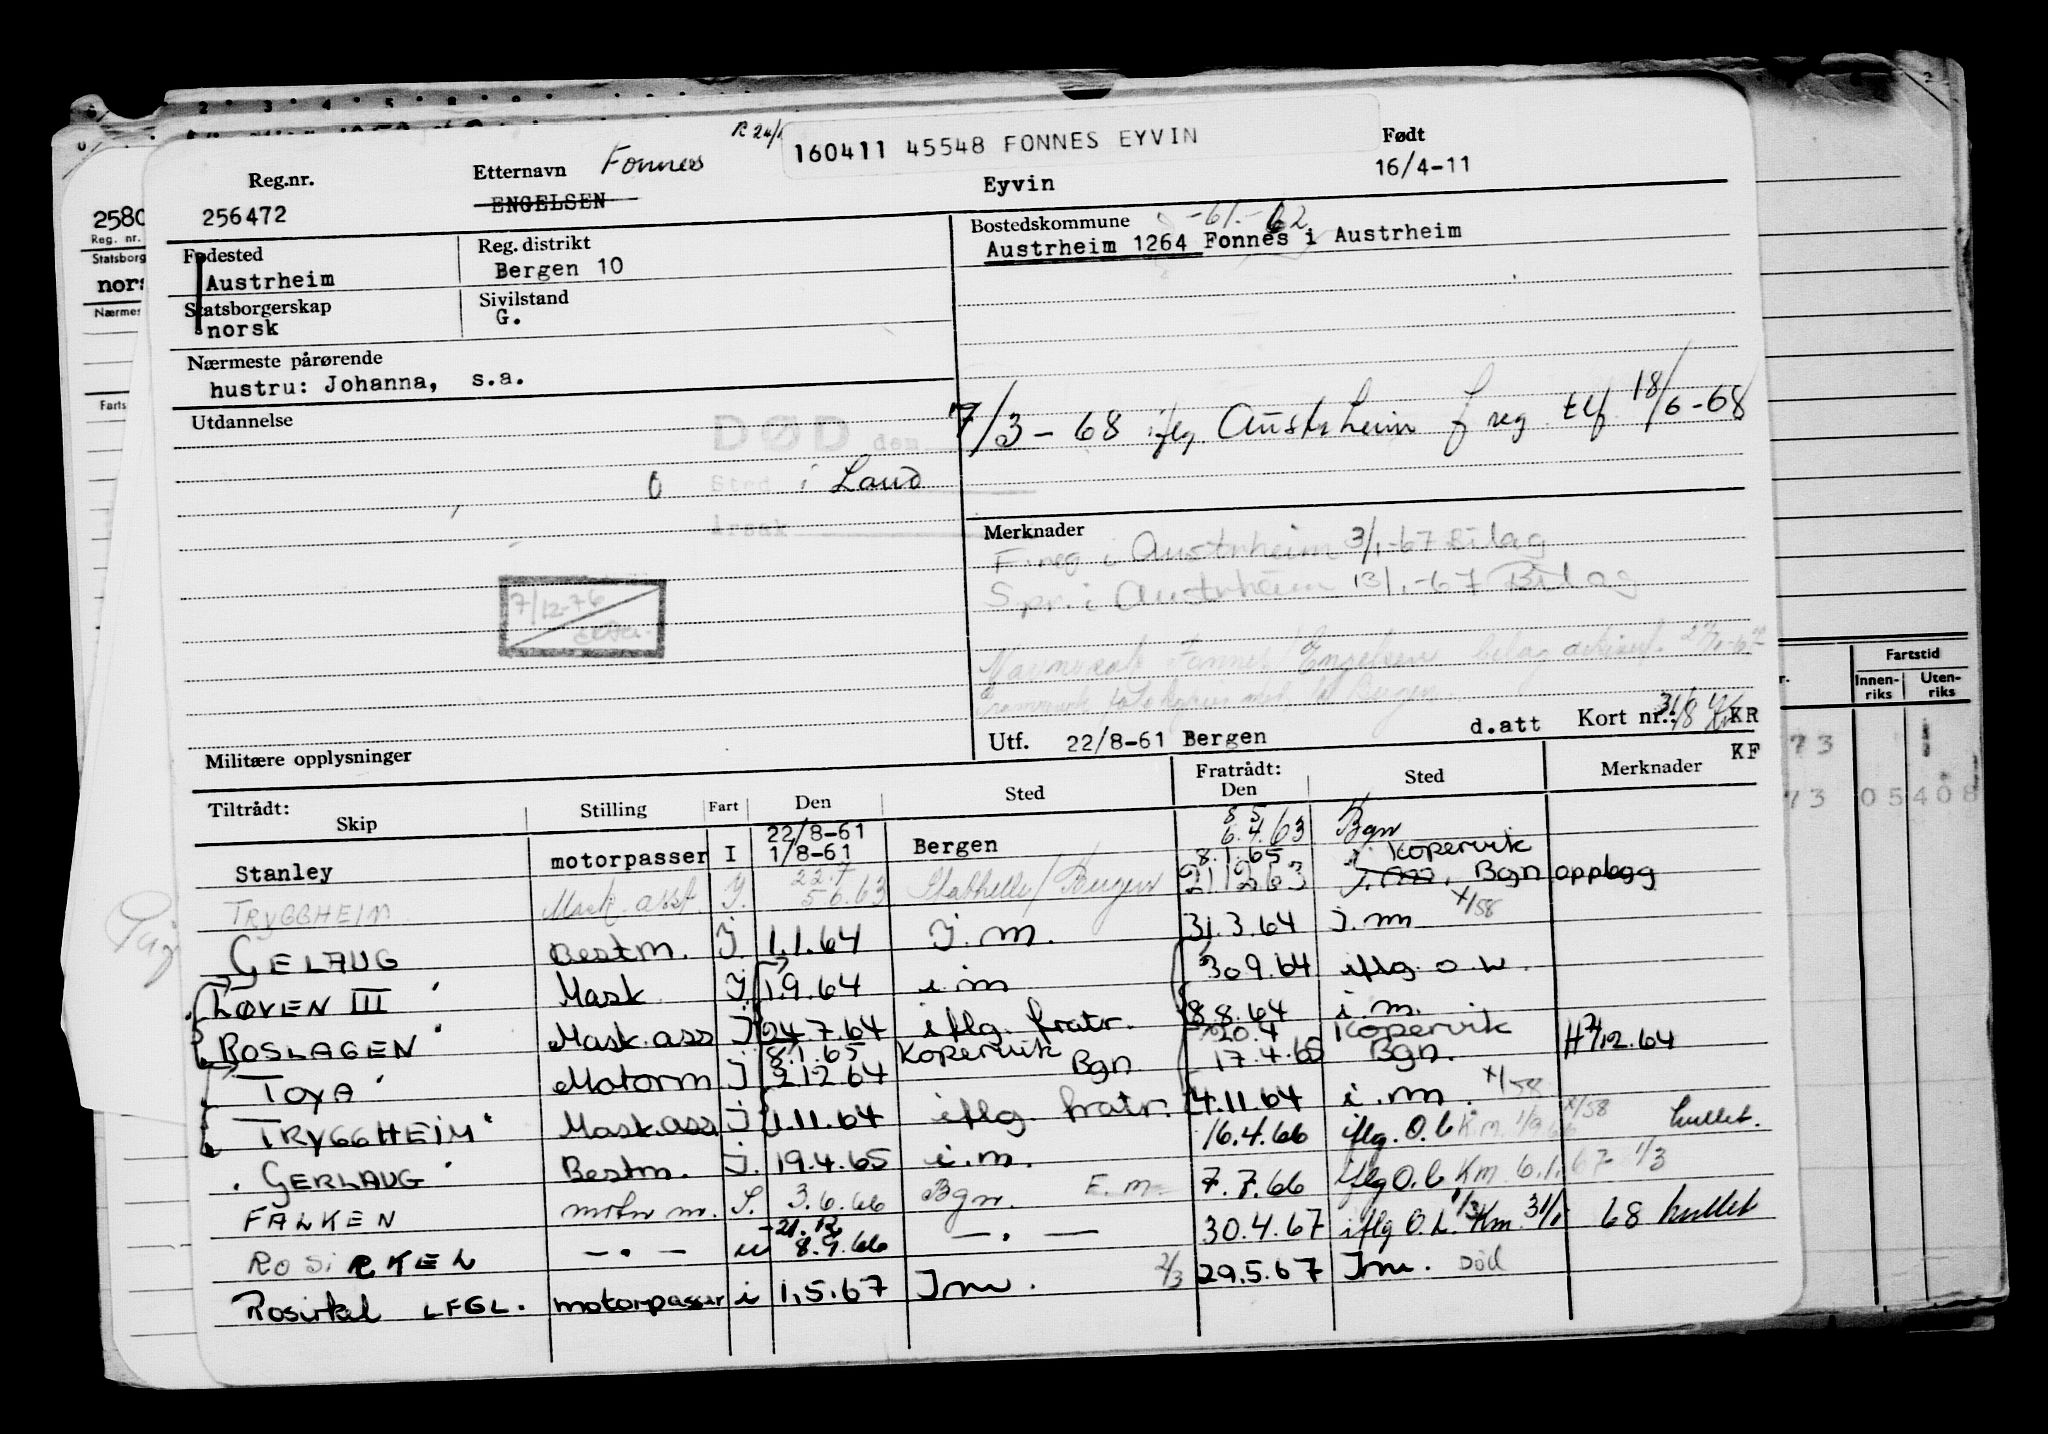 160411 45548 FONNES EYVIN
Reg.nr.
256472
Etternavn Fonnes
ENGELSEN
Eyvin
Født
16/4-11
Fødested
Austrheim
Reg. distrikt
Bergen 10
Bostedskommune -61.-62
Austrheim 1264 Fonnes i Austrheim
Statsborgerskap
norsk
Sivilstand
G.
Nærmeste pårørende
hustru: Johanna, s.a.
Utdannelse
DØD den 7/3-68 iflg. Austrheim f reg. tlf 18/6-68
Sted i Land
årsak
Merknader
F.reg i Austrheim 3/1-67 Bilag
S.pr. i Austrheim 13/1-67 Bilag
7/12-76
Utf. 22/8-61 Bergen d.att Kort nr.: 31/8 KR
KF
Militære opplysninger
Tiltrådt:
Skip Stilling Fart Den Sted
Fratrådt:
Den Sted Merknader
Stanley motorpasser I 22/8-61 1/8-61 Bergen 8.5 6.4.63 Bgn
TRYGGHEIM Mask.asst. I. 22.7 5.6.63 / Bergen 8.1.65 21.12.63 Kopervik Bgn opplegg
GELAUG Bestm. I. 1.1.64 I.m. 31.3.64 I.m. x/58
LØVEN III Mask I. 1.9.64 i m 30.9.64 iflg. o.w.
ROSLAGEN Mask.ass I 24.7.64 iflg. fratr. 8.8.64 i.m.
TOYA Motorm I 8.1.65 2.12.64 Kopervik Bgn 20.4 17.4.65 Kopervik Bgn. 12.64
TRYGGHEIM Mask.ass I 1.11.64 iflg. fratr. 4.11.64 i.m. x/58
GERLAUG Bestm. I. 19.4.65 i.m. 16.4.66 iflg. O.b K.m. 1/9 66 x/58 hullet.
FALKEN motor m. I. 3.6.66 Bgn. E.m. 7.7.66 iflg O.b Km 6.1.67 1/3
ROSIRKEL — . — u 21.12 8.9.66 — . — 30.4.67 iflg O.b. 1/3 Km. 31/1 68 hullet
Rosirkel LFGL. motorpasser i 1.5.67 Im. 2/3 29.5.67 Im. Død
2580
Reg. nr.
Statsborg
nors
Nærmes
Farts
Fartstid
Innen-
riks
Uten-
riks
73
73 05408